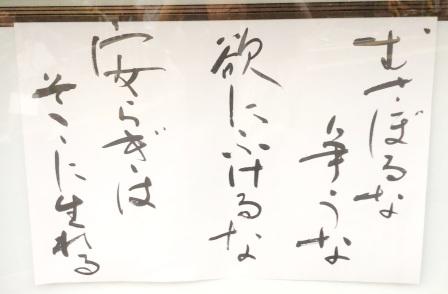 むさぼるな
争うな
欲にふけるな
安らぎは
そこに生れる